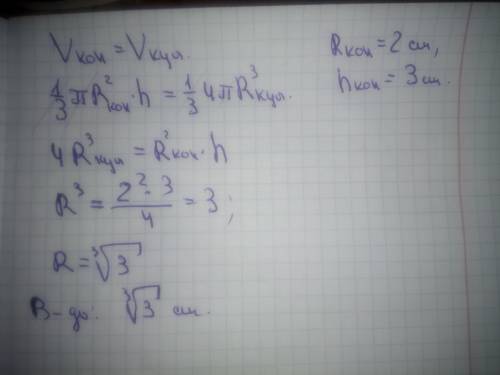 Vкон = Vкулі.
1/3 πR²кон · h = 1/3 4πR³кулі.
4R³кулі = R²кон · h
R³ = 2² · 3 / 4 = 3 ;
R = ∛3
В-дь: ∛3 см.
Rкон = 2 см,
hкон = 3 см.